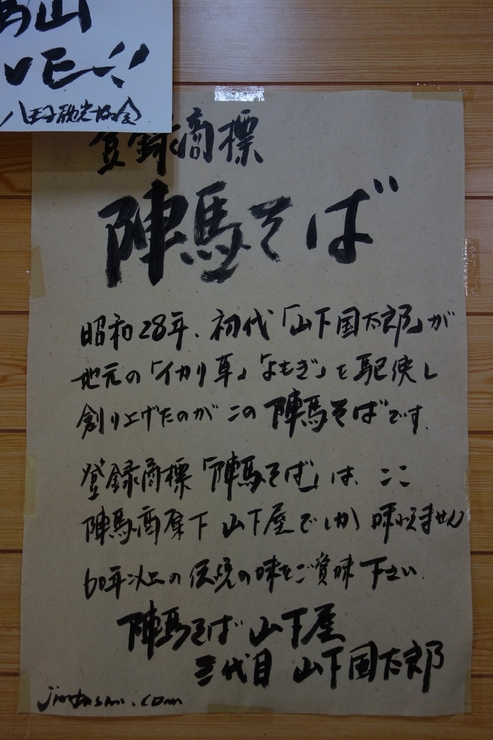 馬山
VE!!
八王子観光協会
登録商標
陣馬そば
昭和28年、初代「山下国太郎」が
地元の「イカリ草」「よもぎ」を駆使し
創り上げたのがこの陣馬そばです。
登録商標「陣馬そば」は、ここ
陣馬高原下 山下屋でしか味わえません
60年以上の伝統の味をご賞味下さい。
陣馬そば 山下屋
三代目 山下国太郎
jinbasan.com